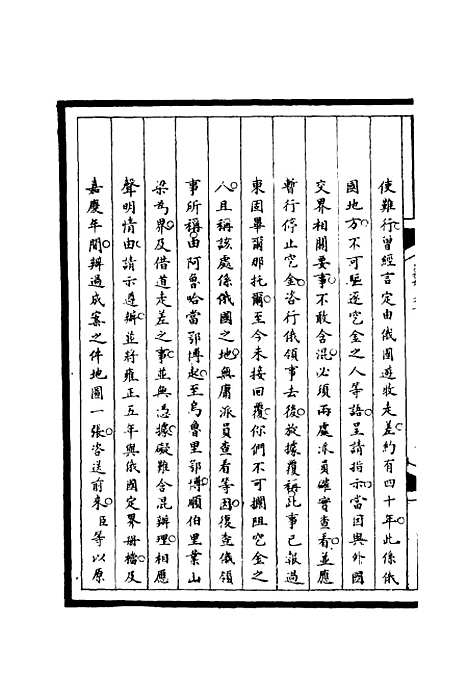 使難行曾經言定由俄國遊牧走差約有四十年此係俄
國地方不可驅逐窕金之人等語呈請指示當因與外國
交界相關要事不敢含混必須兩處派員確實查看並應
暫行停止窕金咨行俄領事去後茲據覆稱此事已報過
東固畢爾那托爾至今未接回覆你們不可攔阻窕金之
人且稱該處係俄國之地無庸派員查看等因復查俄領
事所稱由阿魯哈當鄂博起至烏魯里鄂博順伯里業山
梁為界及借道走差之事並無憑據礙難含混辦理相應
聲明情由請示遵辦並將雍正五年與俄國定界冊檔及
嘉慶年間辦過成案之件地圖一張咨送前來臣等以原